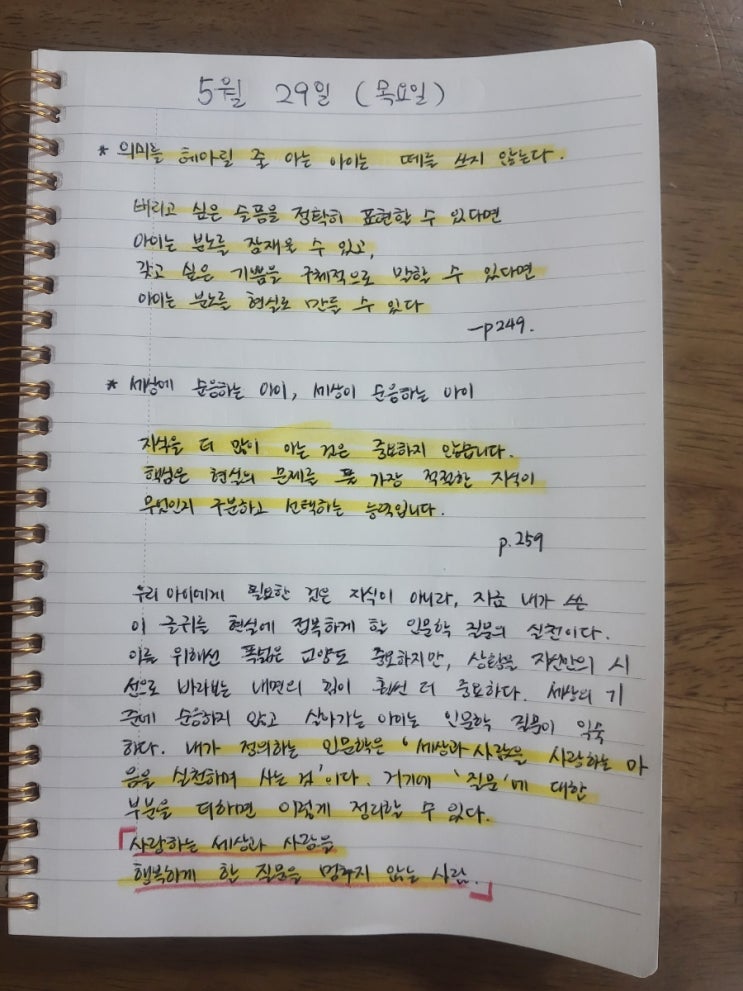 5월 29일 (목요일)
* 의미를 헤아릴 줄 아는 아이는 떼를 쓰지 않는다.
버리고 싶은 슬픔을 정확히 표현할 수 있다면
아이는 분노를 잠재울 수 있고,
갖고 싶은 기쁨을 구체적으로 말할 수 있다면
아이는 분노를 현실로 만들 수 있다
-p249.
* 세상에 순응하는 아이, 세상이 순응하는 아이
지식을 더 많이 아는 것은 중요하지 않습니다.
핵심은 현실의 문제를 풀 가장 적절한 지식이
무엇인지 구분하고 선택하는 능력입니다.
p.259
우리 아이에게 필요한 것은 지식이 아니라, 지금 내가 쓴
이 글귀를 현실에 접목하게 할 인문학 질문의 실천이다.
이를 위해선 폭넓은 교양도 중요하지만, 상황을 자신만의 시
선으로 바라보는 내면의 힘이 훨씬 더 중요하다. 세상의 기
준에 순응하지 않고 살아가는 아이는 인문학 질문이 익숙
하다. 내가 정의하는 인문학은 '세상과 사람을 사랑하는 마
음을 실천하며 사는 것'이다. 거기에 '질문'에 대한
부분을 더하면 이렇게 정리할 수 있다.
「사랑하는 세상과 사람을
행복하게 할 질문을 멈추지 않는 사람.」